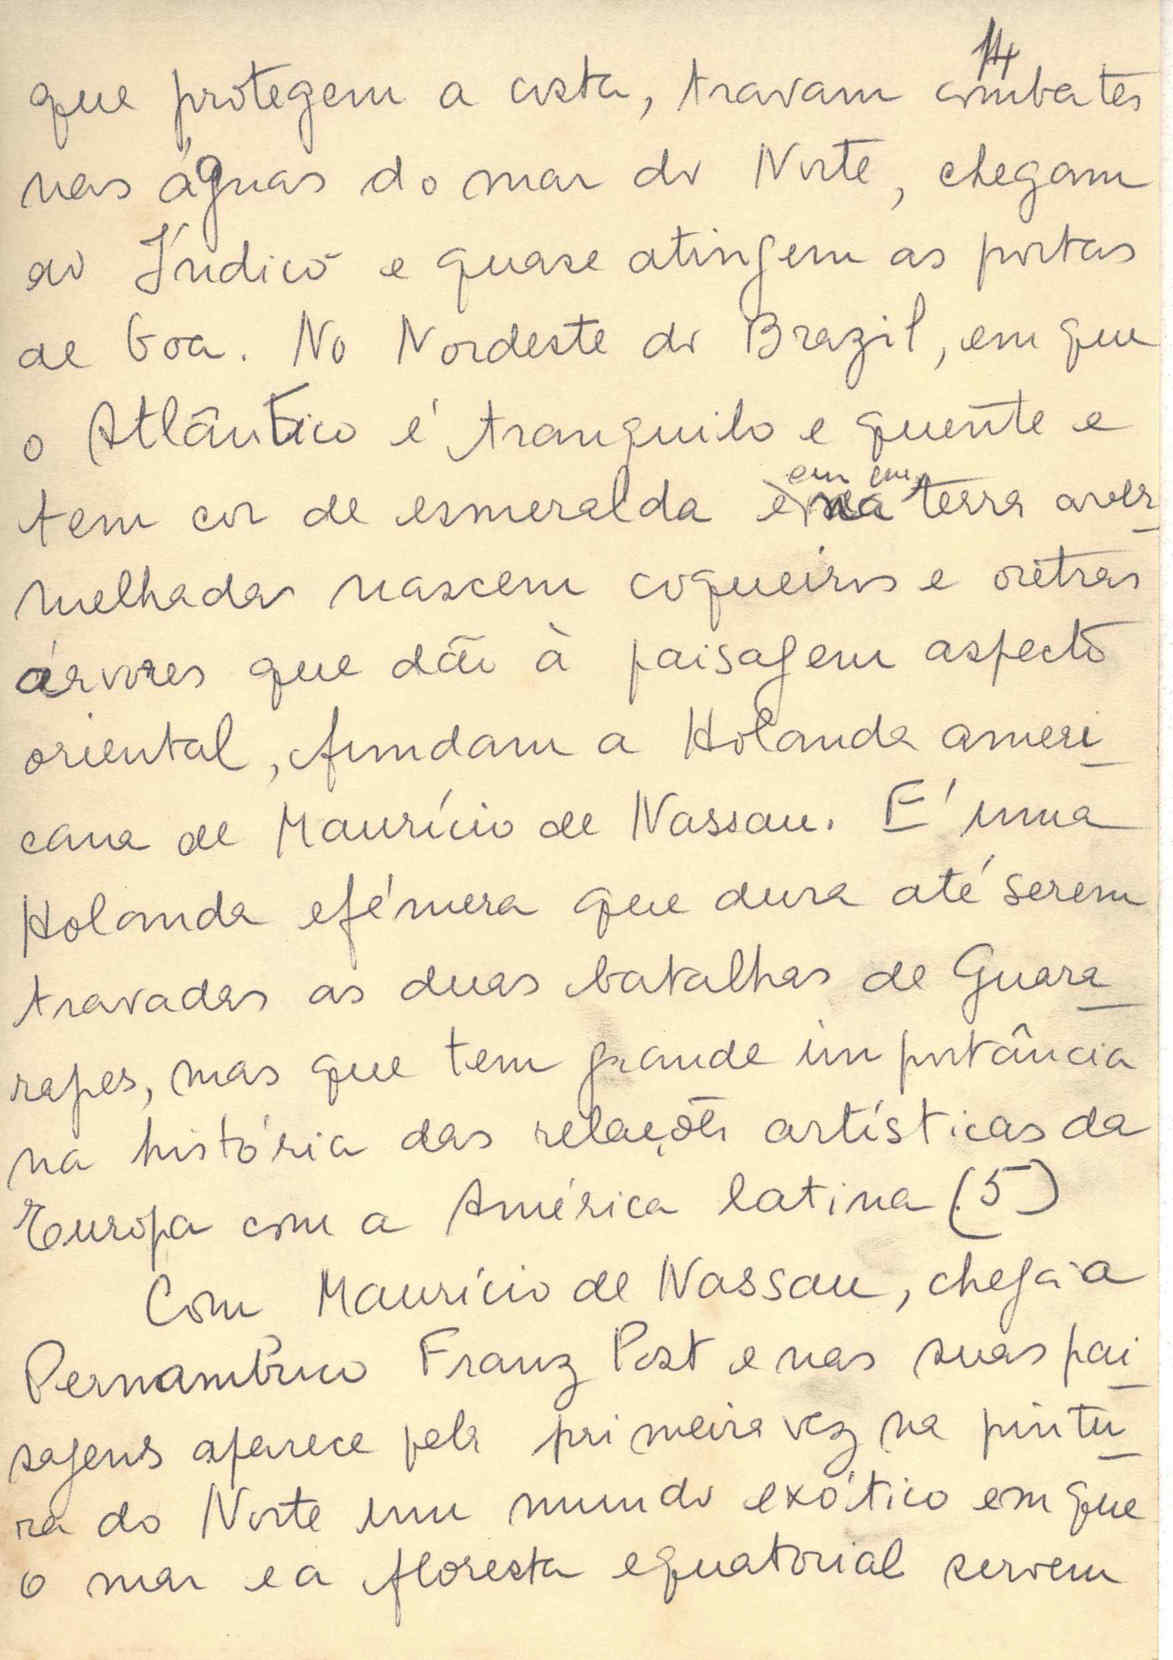 14
que protegem a costa, travam combates
nas águas do mar do Norte, chegam
ao Índico e quase atingem as portas
de Goa. No Nordeste do Brazil, em que
o Atlântico é tranquilo e quente e
em
tem cor de esmeralda e terra aver
melhada nascem coqueiros e outras
árvores que dão à paisagem aspecto
oriental, fundam a Holanda ameri
cana de Maurício de Nassau. É uma
Holanda efémera que dura até serem
travadas as duas batalhas de Guara
rapes, mas que tem grande importância
na história das relações artísticas da
Europa com a América latina (5)
Com Maurício de Nassau, chega a
Pernambuco Franz Post e nas suas pai
sagens aparece pela primeira vez na pintu
ra do Norte um mundo exótico em que
o mar e a floresta equatorial servem